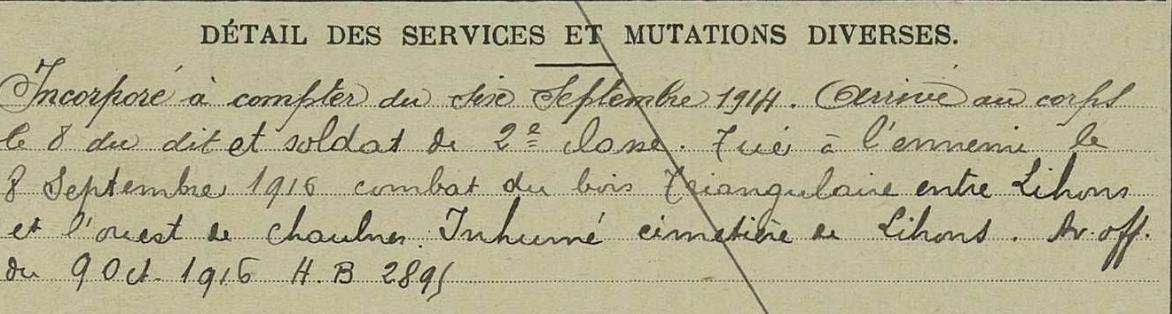 DÉTAIL DES SERVICES ET MUTATIONS DIVERSES.
Incorporé à compter du six Septembre 1914. Arrivé au corps
le 8 du dit et soldat de 2e classe. Tué à l'ennemi le
8 Septembre 1916 combat du bois Triangulaire entre Lihons
et l'ouest de Chaulnes. Inhumé cimetière de Lihons. Av. off.
du 9 Oct. 1916 H.B 2895